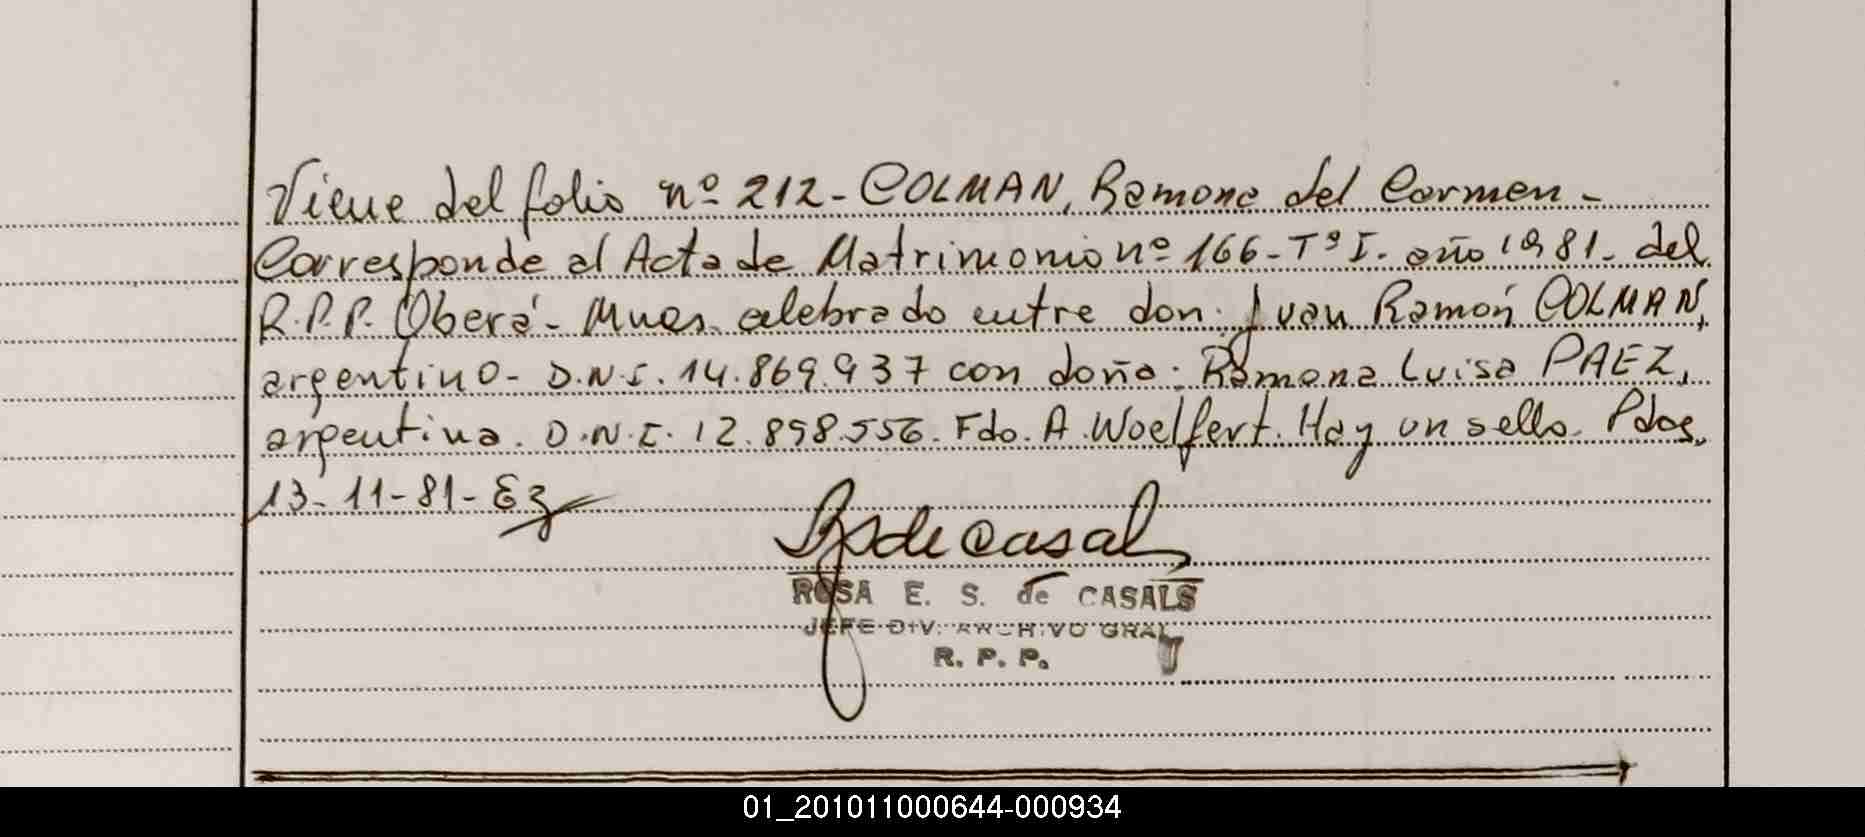 Viene del folio nº 212- COLMAN, Ramona del Carmen-
Corresponde al Acta de Matrimonio nº 166- Tº I. año 1981. del
R.P.P. Oberá- Mnes. celebrado entre don: Juan Ramón COLMAN,
argentino- D.N.I. 14.869.937 con doña: Ramona Luisa PAEZ,
argentina. D.N.I. 12.898.556. Fdo. A. Woelfert. Hay un sello. Pdas,
13-11-81-
ROSA E. S. de CASALS
JEFE DIV. ARCHIVO GRAL
R. P. P.
01_201011000644-000934